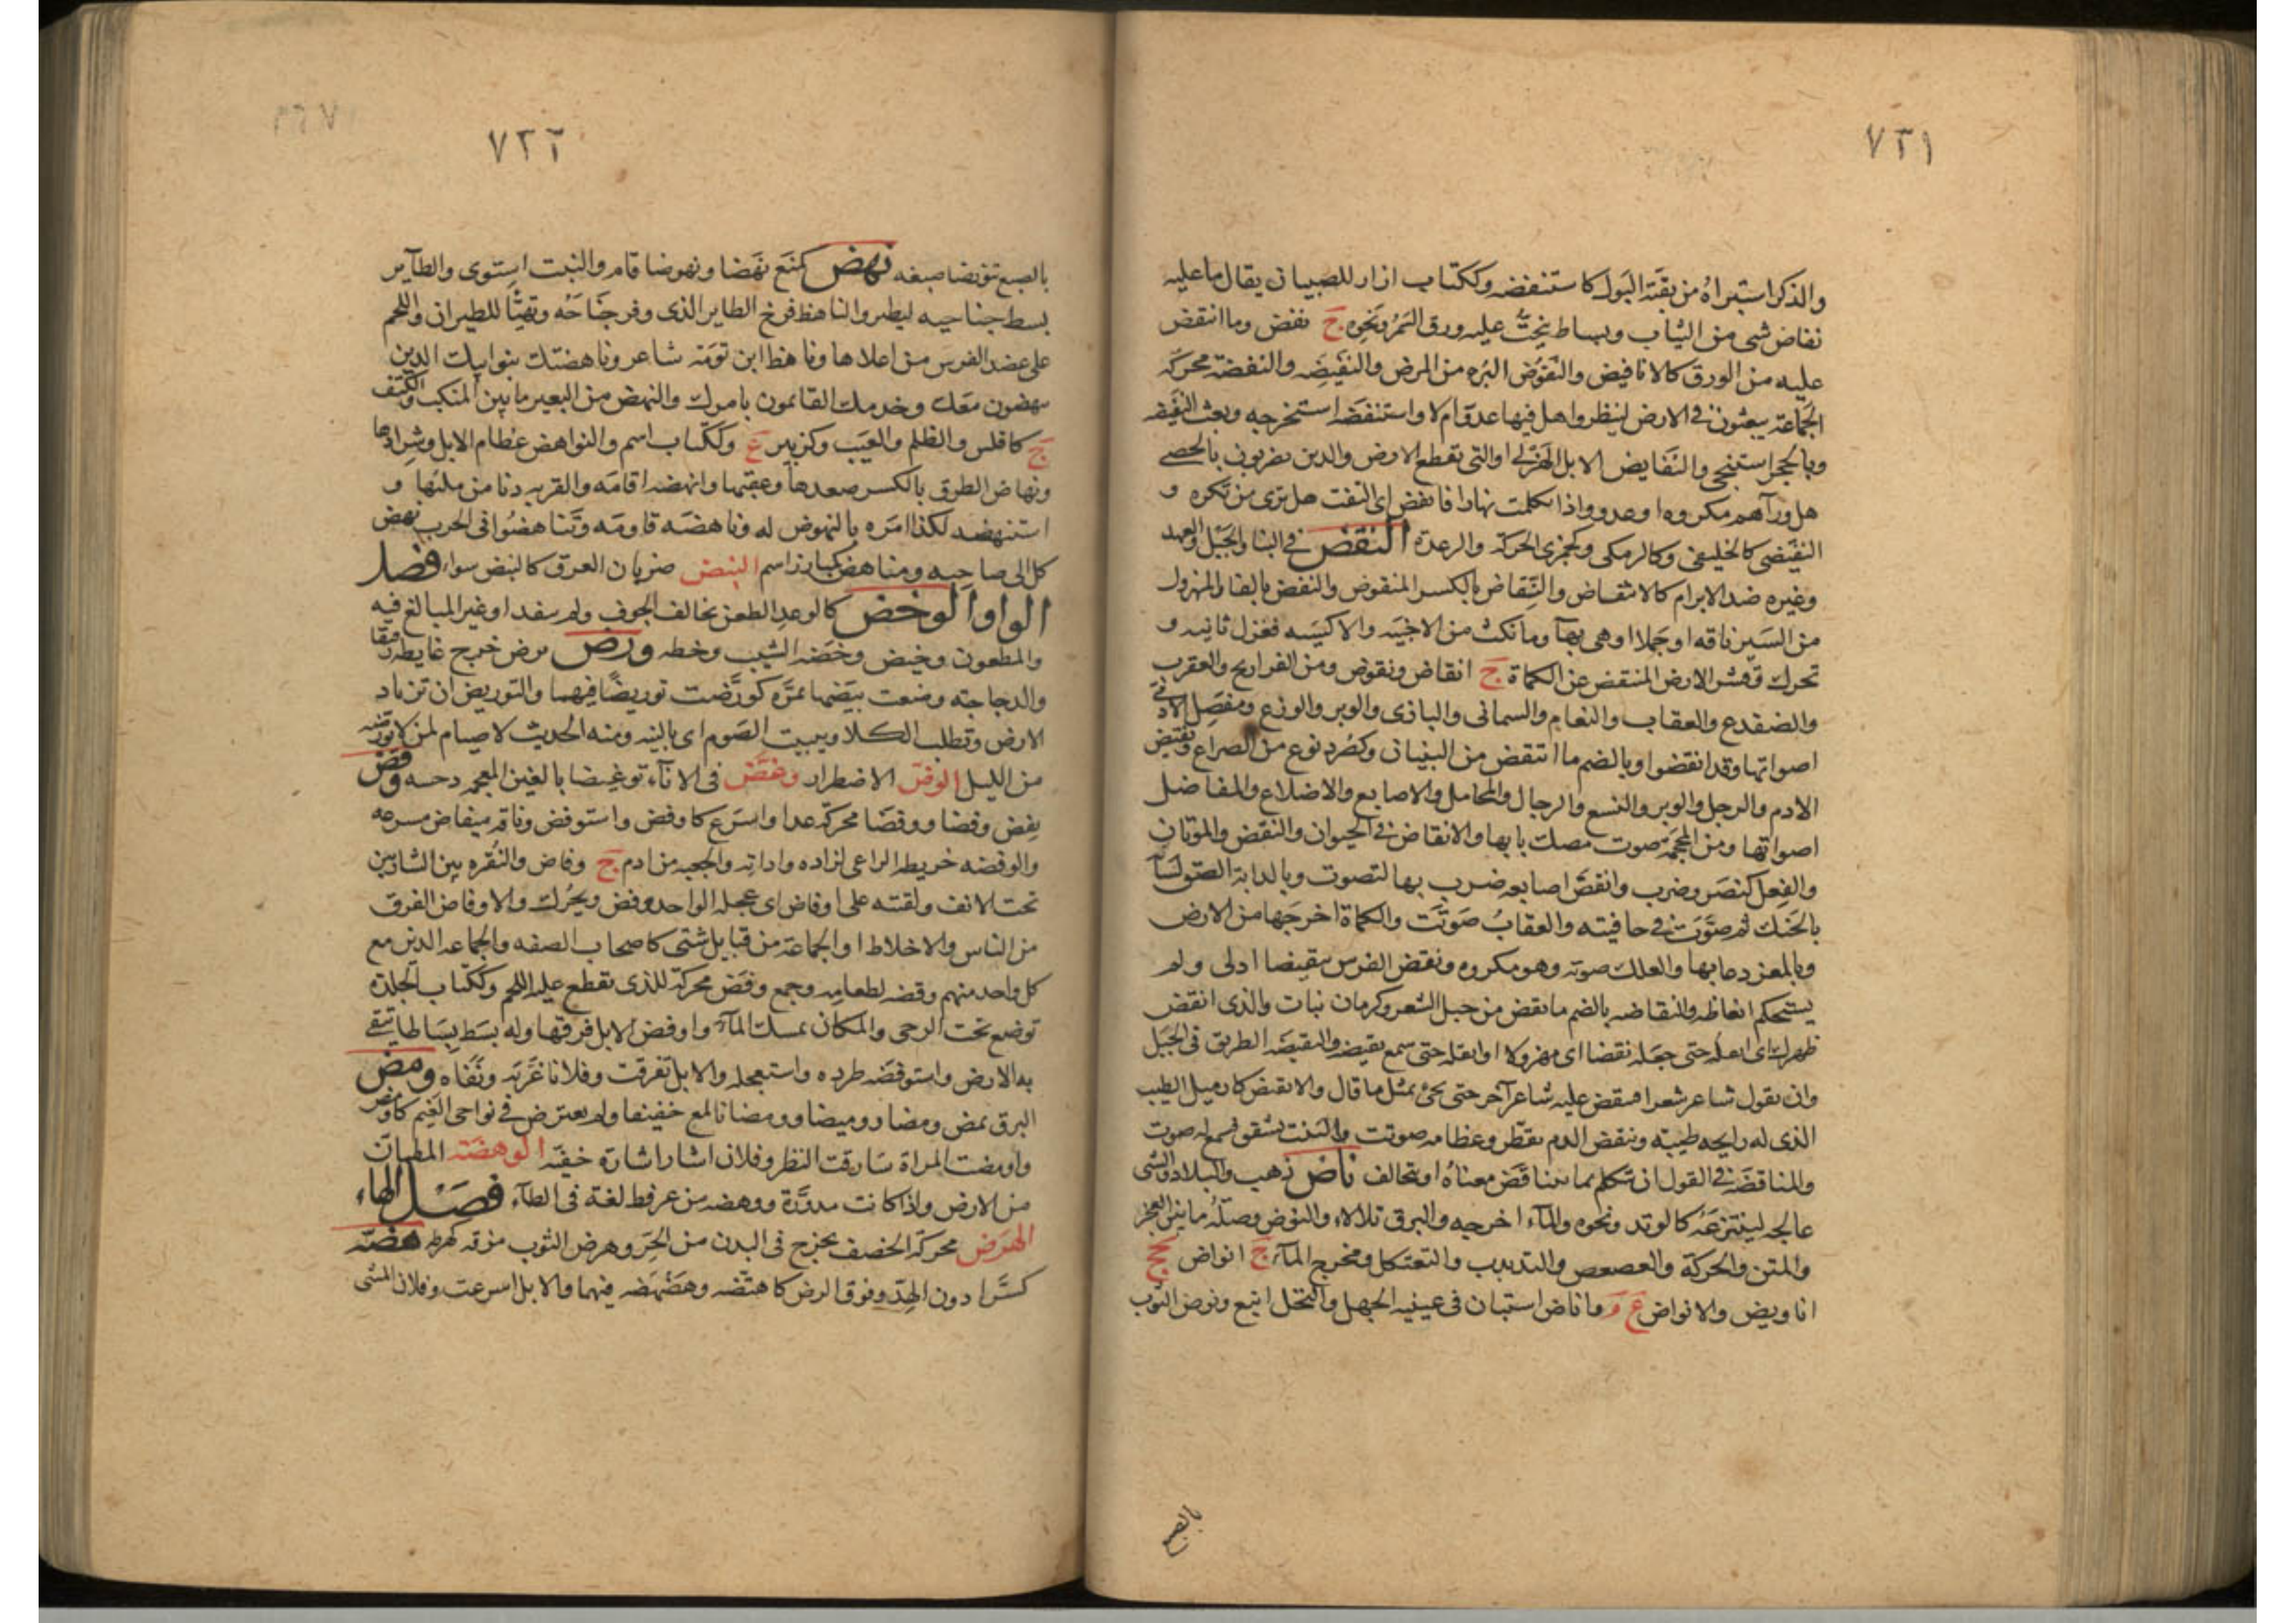 ٧٣١
والذكر استبراه من بقية البول كاستنفضه وككتاب ازار للصبيان يقال ما عليه
نفاض شى من الثياب وبساط ينحتّ عليه ورق السمر ونحوه ج نفض وما انتفض
عليه من الورق كالانافيض والنفوض البره من المرض والنفيضه والنفضة محركة
الجماعة يبعثون فى الارض لينظروا هل فيها عدو ام لا واستنفضه استخرجه وبعث النفيضه
وبالحجر استنجى والنفايض الابل الهزلى او التى تقطع الارض والذين يضربون بالحصى
هل ورآهم مكروه او عدو واذا تكلمت نهارا فانفض اى التفت هل ترى من تكره و
النفيضى كالخليفى وكالزمكى وكجمزى الحركة والرعدة النقض فى البنا والحبل والعهد
وغيره ضد الابرام كالانتقاض والتنقاض بالكسر المنقوض والنفض بالفا والمهزول
من السير ناقه او جملا او هى بهآ وما نكث من الاخبيه والاكسيه فغزل ثانيه و
تحرك قشر الارض المنتقض عن الكماة ج انقاض ونقوض ومن الفراريج والعقرب
والضفدع والعقاب والنعام والسمانى والبازى والوبر والوزغ ومفصل الادمى
اصواتها وقد انقضوا وبالضم ما انتقض من البنيان وكصرد نوع من الصراع ونقيض
الادم والرحل والوبر والنسع والرحال والمحامل والاصابع والاضلاع والمفاصل
اصواتها ومن المحجمة صوت مصك بابها والانقاض فى الحيوان والنقض والموتان
والفعل كنصر وضرب وانقض اصابعه ضرب بها لتصوت وبالدابة الصق لسآنه
بالحنك ثم صوّت فى حافيته والعقاب صوّتت والكماة اخرجها من الارض
وبالمعز دعا بها والعلك صوته وهو مكروه ونقض الفرس تنقيضا ادلى ولم
يستحكم انعاظه والنقاضه بالضم ما نقض من حبل الشعر وكرمان نبات والذى انقض
ظهرك اى اثقله حتى جعله نقضا اى مهزولا او اثقله حتى سمع نقيضه والنقيضه الطريق فى الجبل
وان يقول شاعر شعرا فينقض عليه شاعر آخر حتى يجئ بمثل ما قال والانقيض كازميل الطيب
الذى له رايحه طيبة وتنقض الدم تقطّر وعظامه صوتت والبيت تشقق فسمع له صوت
والمناقضة فى القول ان تتكلم بما يتناقض معناه اى يتخالف ناض ذهب والبلاد والشى
عالجه لينتزعه كالوتد ونحوه والمآء اخرجه والبرق تلالاء والنوض وصلة ما بين العجز
والمتن والحركة والعصعص والتذبذب والتعثكل ومخرج المآء ج انواض جج
اناويض والانواض ع م وماناض استبان فى عينيه الجهل والنخل اينع ونوض الثوب
بالصبغ
٧٣٢
بالصبغ تنويضا صبغه نهض كمنع نهضا ونهوضا قام والنبت استوى والطآير
بسط جناحيه ليطير والناهض فرخ الطاير الذى وفر جناحه وتهيّا للطيران واللحم
على عضد الفرس من اعلاها وناهض ابن ثومة شاعر وناهضتك بنو ابيك الذين
ينهضون معك وخدمك القايمون بامرك والنهض من البعير ما بين المنكب والكتف
ج كافلس والظلم والعيب وكزبير ع وككتاب اسم والنواهض عظام الابل وشدادها
ونهاض الطرق بالكسر صعدها وعقبتها وانهضه اقامه والقربه دنا من ملئها و
استنهضه لكذا امره بالنهوض له وناهضه قاومه وتناهضوا فى الحرب نهض
كل الى صاحبه ومناهض كمبارز اسم النيض ضربان العرق كالنبض سواء فصل
الواو الوخض كالوعد الطعن يخالف الجوف ولم ينفذ او غير المبالغ فيه
والمطعون وخيض وخضه الشيب وخطه ورض يرض خرج غايطه رقيقا
والدجاجة وضعت بيضها بمرّة كورّضت توريضًا فيهما والتوريض ان ترتاد
الارض وتطلب الكلا ويبيت الصوم اى بالنيه ومنه الحديث لا صيام لمن لا يورضه
من الليل الوفض الاضطرار وغض فى الانآء توغيضا بالغين المعجمه دحسه وفض
يفض وفضا ووفضا محركة عدا واسرع كاوفض واستوفض وناقه ميفاض مسرعه
والوفضه خريطة الراعى لزاده واداته والجعبه من ادم ج وفاض والنقره بين الشاربين
تحت الانف ولقته على اوفاض اى عجله الواحد وفض ويحرك والاوفاض الفرق
من الناس والاخلاط او الجماعة من قبايل شتى كاصحاب الصفه والجماعه الذين مع
كل واحد منهم وفضه لطعامه وجمع وفض محركة للذى يقطع عليه اللحم وككتاب الجلدة
توضع تحت الرحى والمكان يمسك المآء واوفض الابل فرقها وله بسط بساطا يتقى
به الارض واستوفضه طرده واستعجله والابل تفرقت وفلانا غرّبه ونفاه ومض
البرق يمض ومضا وميضا وومضانا لمع خفيفا ولم يعترض فى نواحى الغيم كاومض
واومضت المراة سارقت النظر وفلان اشار اشارة خفيه الوهضة المطمان
من الارض واذا كانت مدوّرة ووهضه من عرفط لغة فى الطآء فصل الهاء
الهرض محركة الحصف يخرج فى البدن من الحر وهرض الثوب مزقه كهرطه هضه
كسرا دون الهدّ وفوق الرض كاهتضه وهضهضه فيهما والابل اسرعت وفلان المشى